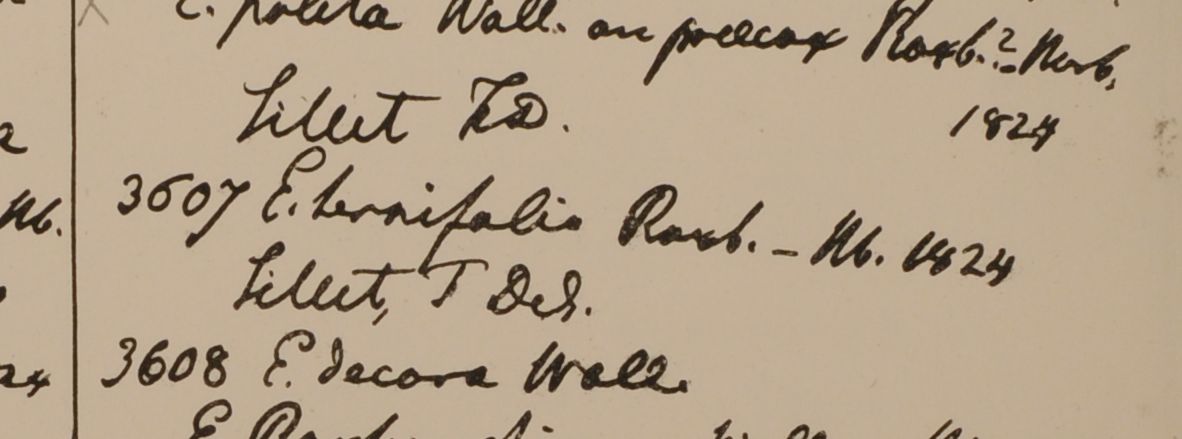 E. polita Wall. an præcox Roxb.? Herb.
Sillet FD. 1824
3607 E. ternifolia Roxb. – Hb. 1824
Sillet, F De S.
3608 E. decora Wall.
E.
Hb.